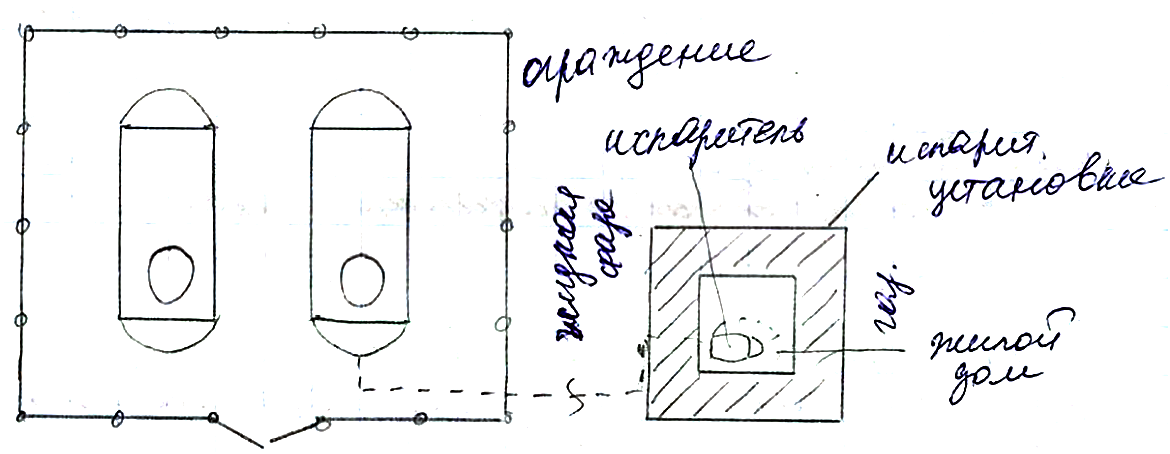 ограждение
испаритель
испарит.
установка
жидкая
фаза
газ.
жилой
дом